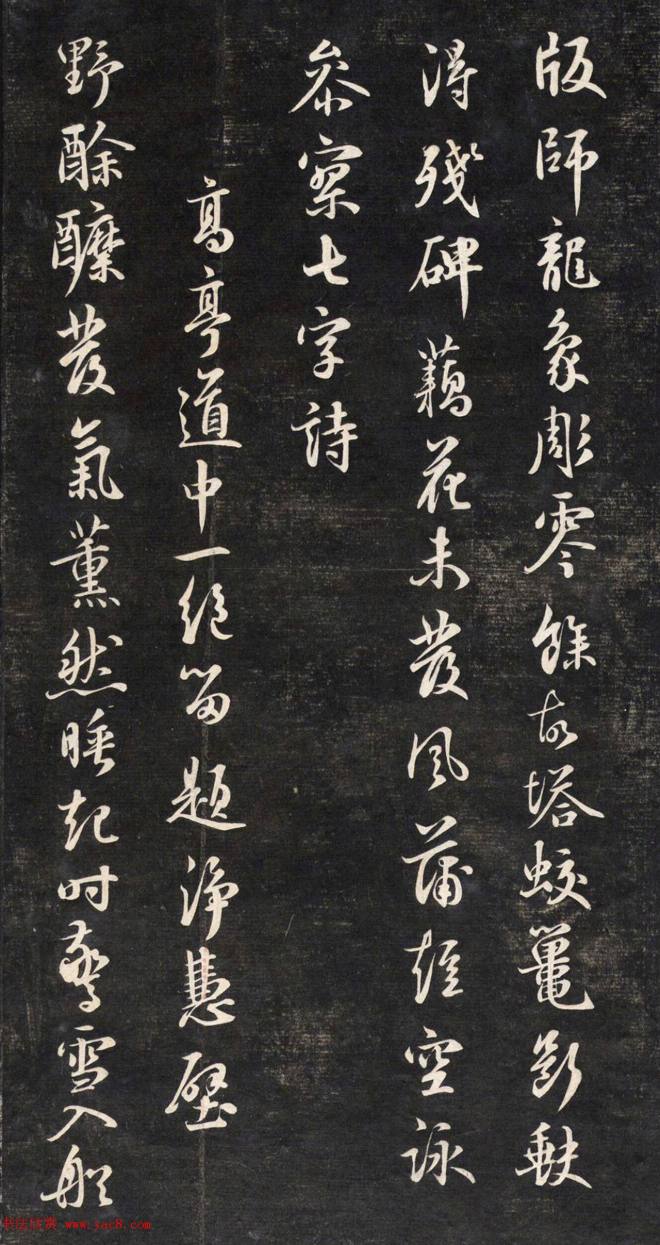 版師龍象彫零餘故塔蛟鼉斷缺
得殘碑藕花未發風蒲短空詠
參寥七字詩
高亭道中一絕留題淨慧壁
野酴醿發氣薰然睡起時驚雪入船
书法欣赏 www.yac8.com